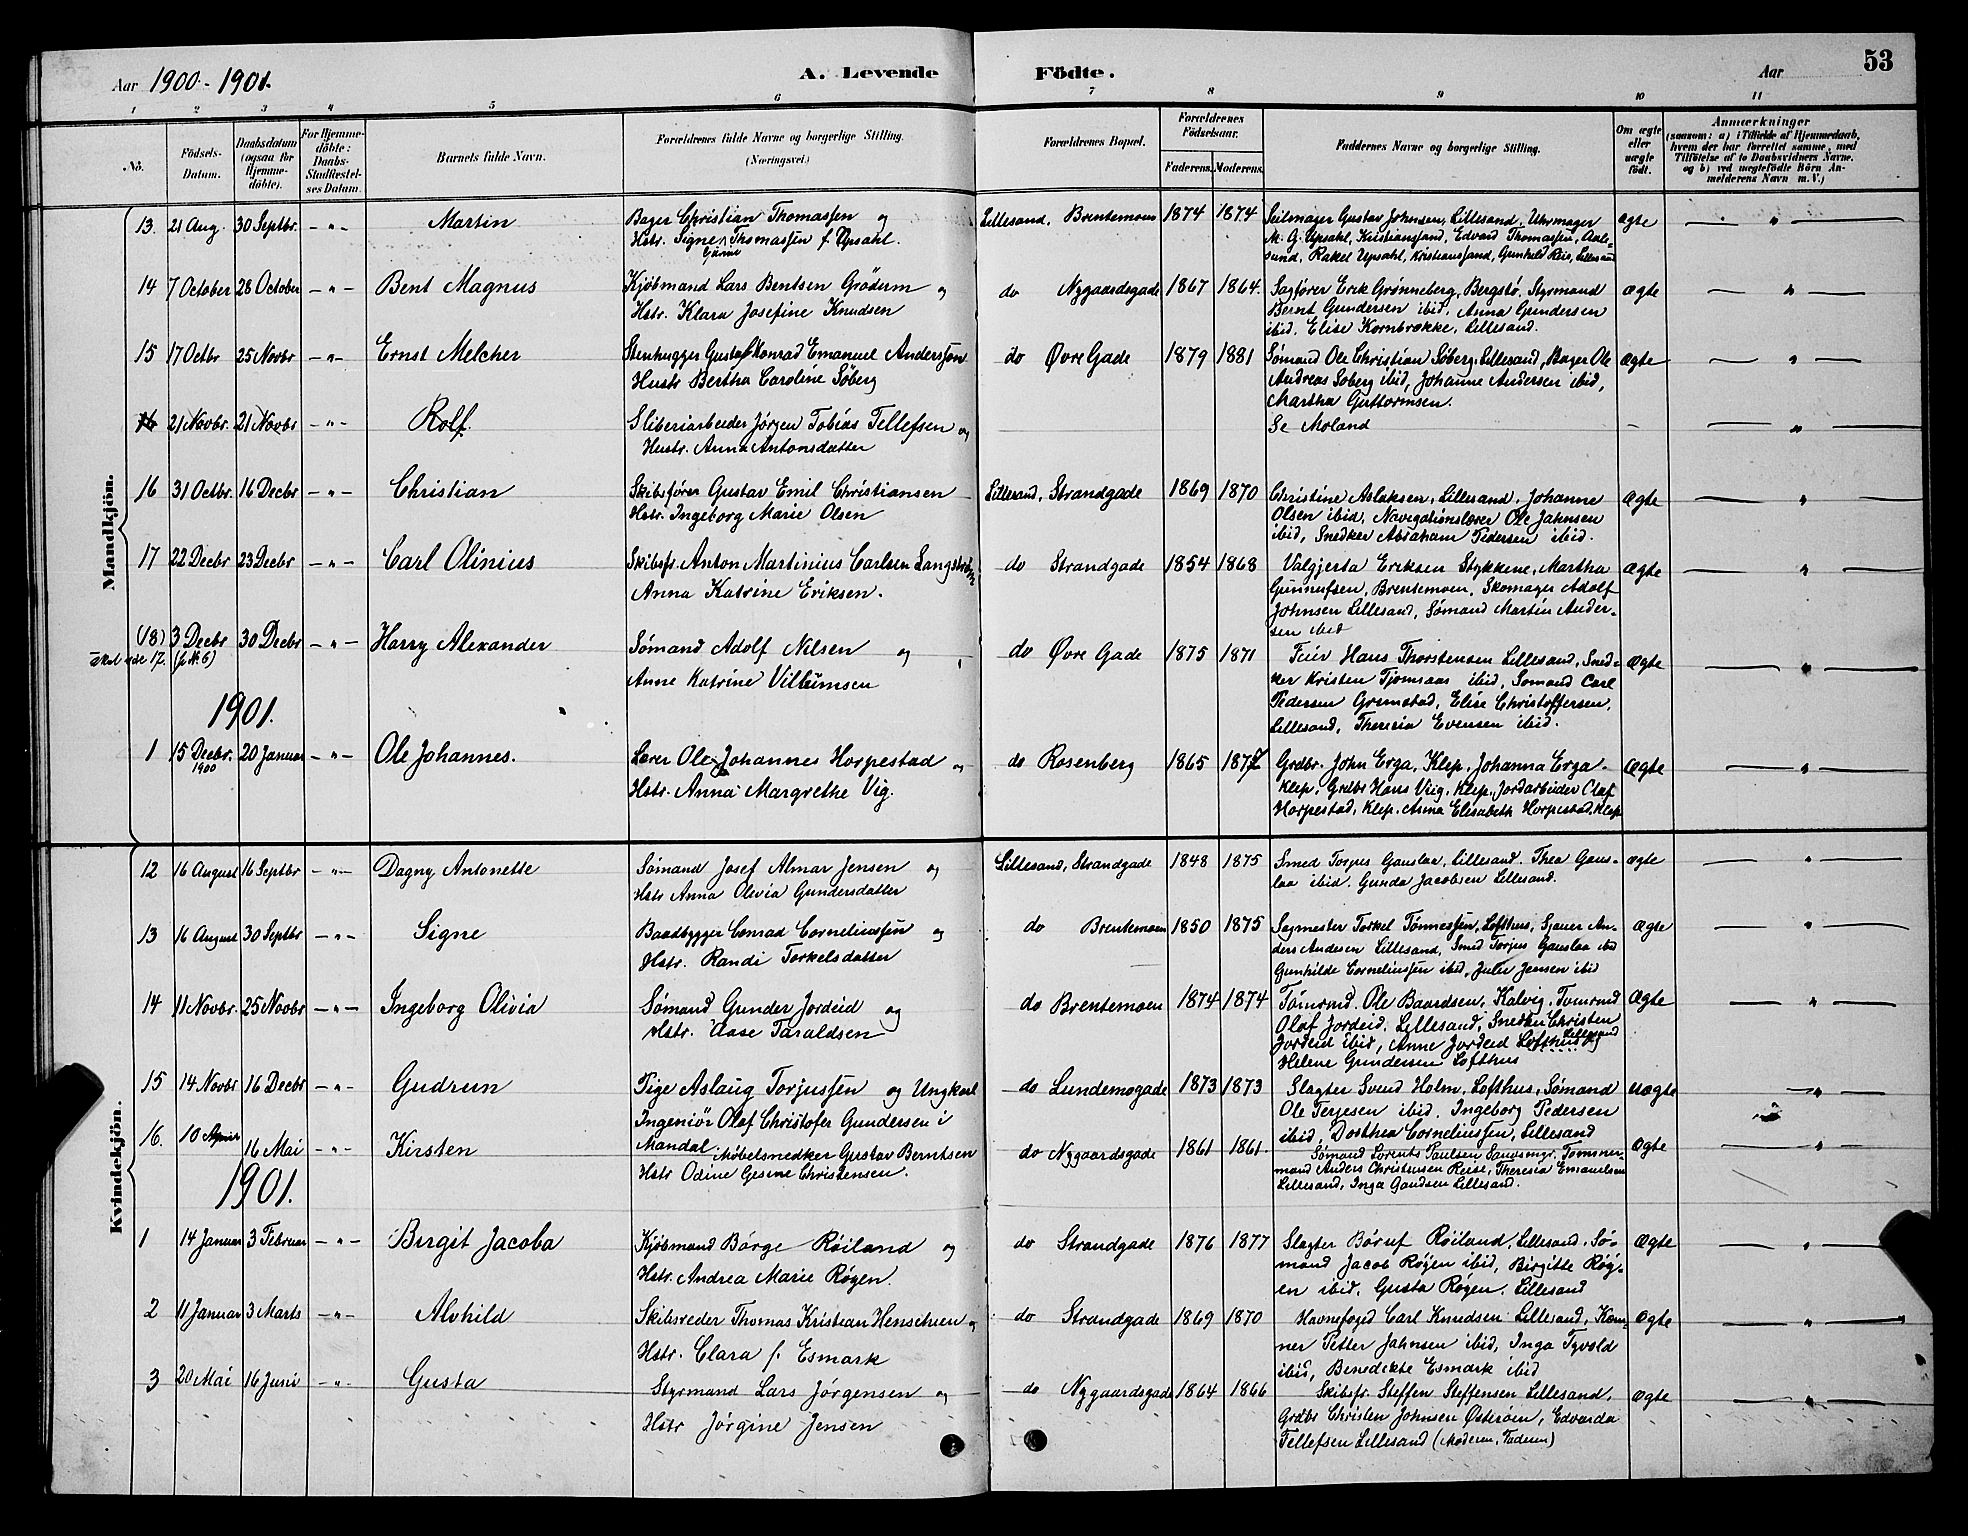 Aar 1900 - 1901.
A. Levende Födte.
Aar
53
1 2 3 4 5 6 7 8 9 10 11
No.
Födsels-Datum.
Daabsdatum (ogsaa for Hjemme-döbte).
For Hjemme-döbte: Daabs-Stadfæstel-ses Datum.
Barnets fulde Navn.
Forældrenes fulde Navne og borgerlige Stilling. (Næringsvei.)
Forældrenes Bopæl.
Forældrenes Födselsaar.
Faderens. Moderens.
Faddernes Navne og borgerlige Stilling.
Om ægte eller uægte födt.
Anmærkninger
(saasom: a) i Tilfælde af Hjemmedaab, hvem der har forrettet samme, med Tilföielse af to Daabsvidners Navne. og b) ved uægtefödte Börn An-melderens Navn m. V.)
Mandkjön.
13. 21 Aug. 30 Septbr. - " - Martin Bager Christian Thomassen og Lillesand, Brentemoen 1874 1874 Seilmager Gustav Johnsen, Lillesand, Uhrmager ægte
Hstr. Signe Thomassen f. Upsahl. M. G. Upsahl, Kristianssand, Edvard Thomassen, Aale-
sund, Rakel Upsahl, Kristianssand, Gunhild Reis, Lillesand
14 7 October 28 October - " - Bent Magnus Kjöbmand Lars Bentsen Grödum og do Nygaardsgade 1867 1864. Sagförer Erik Grønneberg, Bergstø. Styrmand ægte
Hstr. Klara Josefine Knudsen Bernt Gundersen ibid, Anna Gundersen
ibid. Elise Kornbrække, Lillesand.
15 17 Octbr 25 Novbr - " - Ernst Melcher Stenhugger Gustaf Konrad Emanuel Andersson do Øvre Gade 1879 1881 Sømand Ole Christian Søberg, Lillesand, Bager Ole ægte
Hustr Bertha Caroline Söberg Andreas Soberg ibid, Johanne Andersen ibid,
Martha Guttormsen.
16 21 Novbr. 21 Novbr - " - Rolf. Sliberiarbeider Jörgen Tobias Tellefsen og Se Moland
Hustr. Anna Antonsdatter
16 31 Octbr. 16 Decbr - " - Christian Skibsförer Gustav Emil Christiansen Lillesand, Strandgade 1869 1870 Christine Aslaksen, Lillesand, Johanne ægte
Hstr. Ingeborg Marie Olsen Olsen ibid, Navigationslærer Ole Jahnsen
ibid, Snedker Abraham Pedersen ibid.
17 22 Decbr 23 Decbr - " - Carl Olinius Skibsfr. Anton Martinius Carlsen do Strandgade 1854 1868 Valgjerta Eriksen Stykkene, Martha ægte
Anna Katrine Eriksen. Gunnufsen, Brentemoen, Skomager Adolf
Johnsen Lillesand, Sømand Martin Ander-
sen ibid
(18) 3 Decbr 30 Decbr - " - Harry Alexander Sømand Adolf Nilsen og do Øvre Gade 1875 1871 Feier Hans Thorstensen Lillesand, Sned- ægte
17. Anne Katrine Villumsen ker Kristen Tjomsaas ibid, Sømand Carl
Pedersen Grimstad, Elise Christoffersen,
Lillesand, Theresia Evensen ibid.
1901.
1 15 Decbr. 1900 20 Januar - " - Ole Johannes. Lærer Ole Johannes Horpestad og do Rosenberg 1865 1877 Grdbr. John Erga, Klep, Johanna Erga ægte
Hstr. Anna Margrethe Vig. Klep, Grdbr Hans Viig, Klep, Jordarbeider Olaf
Horpestad, Klep. Anna Elisabeth Horpestad, Klep
Kvindekjön.
12 16 August 16 Septbr - " - Dagny Antonette Sømand Josef Almar Jensen og Lillesand, Strandgade 1848 1875 Smed Torjus Gauslaa, Lillesand. Thea Gaus- ægte
Hstr Anna Olivia Gundersdatter laa ibid. Gunda Jacobsen Lillesand.
13 16 August 30 Septbr - " - Signe Baadbygger Conrad Corneliussen og do Brentemoen 1850 1875 Sagmester Torkel Tønnessen, Lofthus, Sjauer An- ægte
Hstr. Randi Torkelsdatter ders Andersen Lillesand, Smed Torjus Gauslaa ibid
Gunhilde Corneliussen ibid, Julie Jensen ibid
14 11 Novbr. 25 Novbr - " - Ingeborg Olivia Sømand Gunder Jordeid og do Brentemoen 1874 1874 Tømrmd. Ole Baardsen, Kalvig, Tømrmd ægte
Hstr. Aase Taraldsen Olaf Jordeid, Lillesand, Snedker Christen
Jordeid ibid, Anne Jordeid Lofthus Lillesand og
Helene Gundersen Lofthus
15 14 Novbr 16 Decbr - " - Gudrun Pige Aslaug Torjussen og Ungkarl do Lundemogade 1873 1873 Slagter Svend Holm, Lofthus, Sømand uægte
Ingeniör Olaf Christofer Gundersen i Ole Terjesen ibid, Ingeborg Pedersen
Mandal. ibid, Dorthea Corneliussen, Lillesand
16. 10 April 16 Mai - " - Kirsten Møbelsnedker Gustav Berntsen do Nygaardsgade 1861 1861 Sømand Lorents Paulsen Tømmer- ægte
Hstr Odine Gesine Christensen. mand Anders Christensen Reise, Theresia Emanuelsen
Lillesand, Inga Gundsen Lillesand.
1901.
1 14 Januar 3 Februar - " - Birgit Jacoba Kjöbmand Börge Röiland og do Strandgade 1876 1877 Slagter Böruf Röiland, Lillesand. Sø- ægte
Hstr. Andrea Marie Røgen. mand Jacob Røgen ibid, Birgitte Røg-
en ibid. Gusta Røgen, Lillesand
2 11 Januar 3 Marts - " - Alvhild Skibsreder Thomas Kristian Henschien og do Strandgade 1869 1870 Havnefoged Carl Knudsen Lillesand, Kæm- ægte
Hstr. Clara f. Esmark ner Petter Jahnsen ibid, Inga Tyvold
ibid, Benedikte Esmark ibid
3 20 Mai 16 Juni - " - Gusta Styrmand Lars Jörgensen og do Nygaardsgade 1864 1866 Skibsfr. Steffen Steffensen Lillesand, ægte
Hstr Jörgine Jensen Grdbr Christen Johnsen Østerøen, Edvarda
Tellefsen Lillesand (Moderen, Faderen)